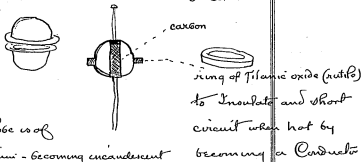 carbon
ring of Titanic oxide (rutile)
to Insulate and short
circuit when hot by
becoming a Conductor
is of
- becoming incandescent